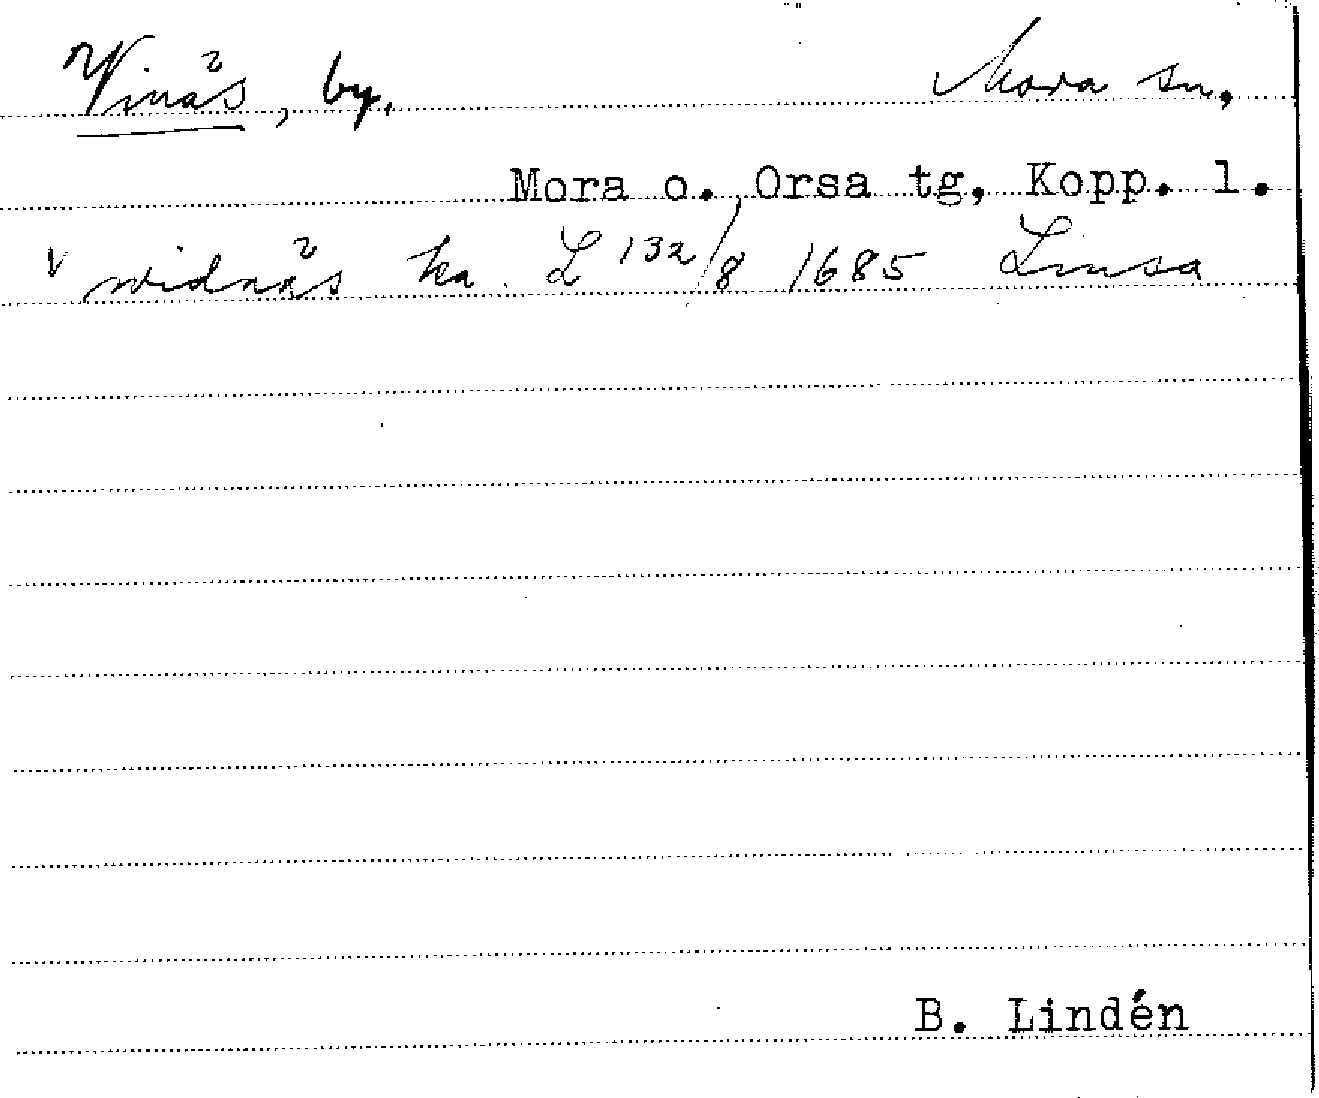 Vinäs, by. Mora sn.
Mora o. Orsa tg, Kopp. l.
v widnäs ka. L 132/8 1685 Linsa
B. Lindén